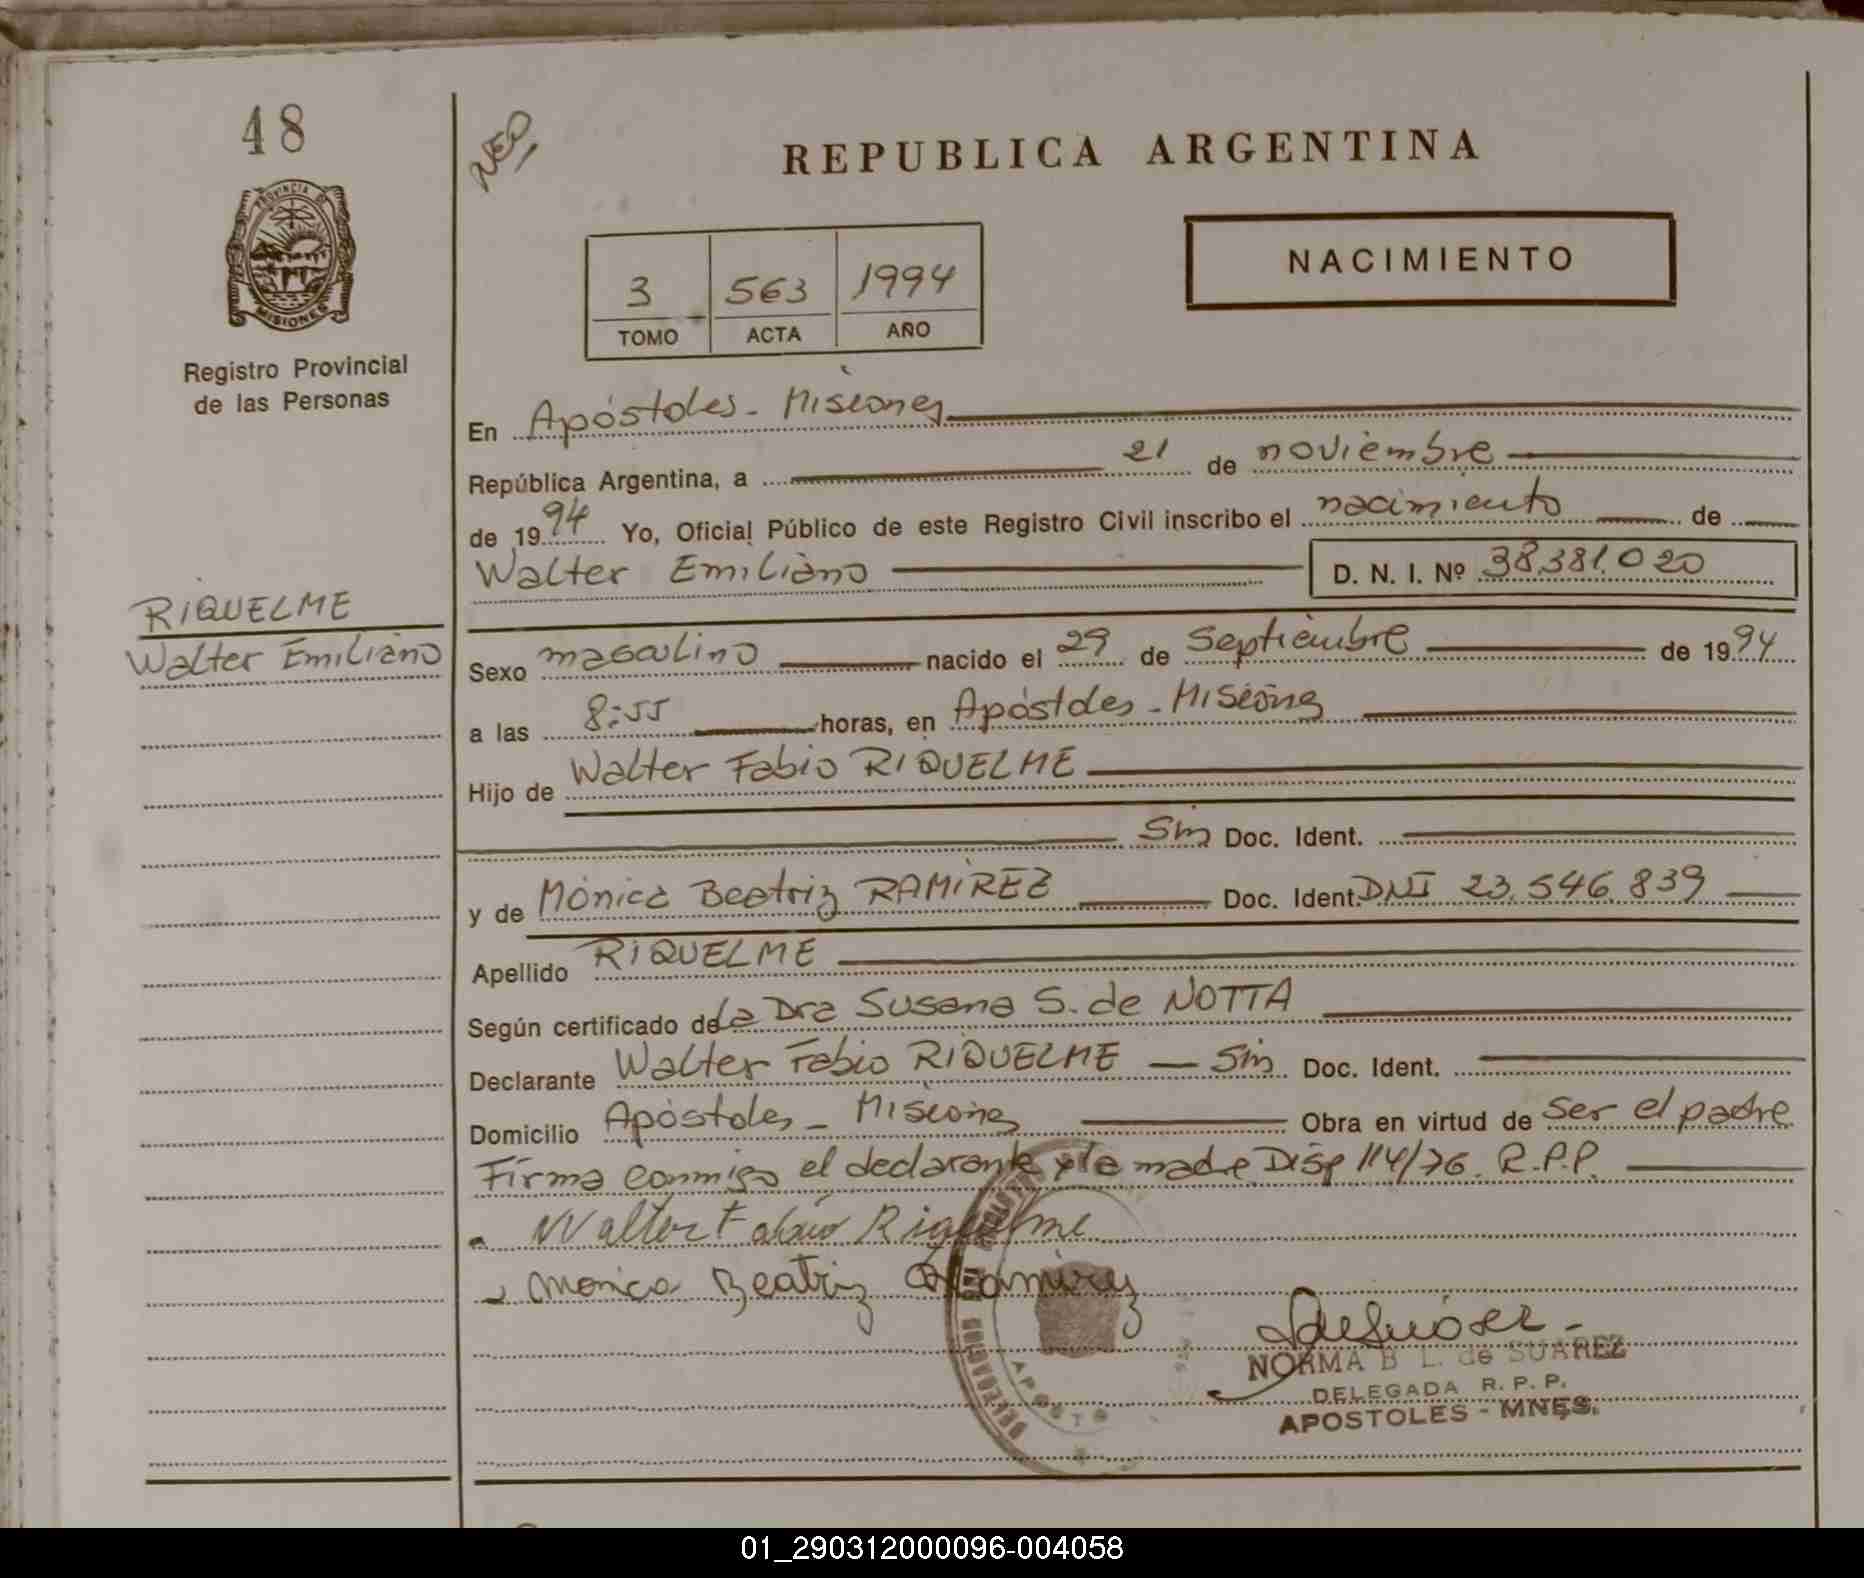 48
PROVINCIA DE
MISIONES
Registro Provincial
de las Personas
RIQUELME
Walter Emiliano
REPUBLICA ARGENTINA
NACIMIENTO
3 563 1994
TOMO ACTA AÑO
En Apóstoles - Misiones
República Argentina, a 21 de noviembre
de 1994 Yo, Oficial Público de este Registro Civil inscribo el nacimiento de
Walter Emiliano D. N. I. Nº 38.381.020
Sexo masculino nacido el 29 de Septiembre de 1994
a las 8:55 horas, en Apóstoles - Misiones
Hijo de Walter Fabio RIQUELME
Sin Doc. Ident.
y de Mónica Beatriz RAMIREZ Doc. Ident. DNI 23.546.839
Apellido RIQUELME
Según certificado de la Dra Susana S. de NOTTA
Declarante Walter Fabio RIQUELME — Sin Doc. Ident.
Domicilio Apóstoles - Misiones Obra en virtud de ser el padre
Firma conmigo el declarante y la madre Disp 114/76. R.P.P.
Walter Fabio Riquelme
Monica Beatriz Ramirez
NORMA B L. de SUAREZ
DELEGADA R. P. P.
APOSTOLES - MNES.
01_290312000096-004058